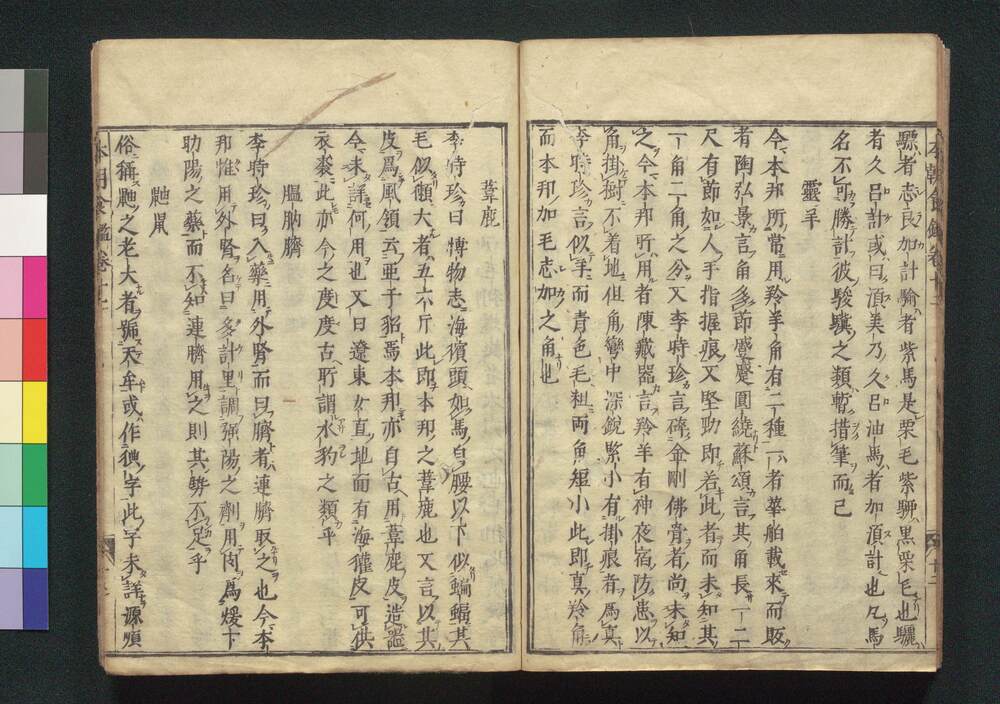 驃者志良加計騧者紫馬是栗毛紫騂黒栗毛也驪
者久呂計或曰須美乃久呂油馬者加須計也凡馬
名不可勝計彼駿驥之類暫措筆而已
靈羊
今本邦所常用羚羊角有二種一者華舶載來而販
者陶弘景言角多節蹙蹙圓繞蘇頌言其角長一二
尺有節如人手指握痕又堅勁即若此者而未知其
一角二角之分又李時珍言碎金剛佛骨者尚未知
之今本邦所用者陳藏器言羚羊有神夜宿防患以
角掛樹不着地但角彎中深鋭緊小有掛痕者爲眞
李時珍言似羊而青色毛粗兩角短小此即真羚角
而本邦加毛志加之角也
葦鹿
李時珍曰博物志海獱頭如馬自腰以下似蝙蝠其
毛似獺大者五六斤此即本邦之葦鹿也又言以其
皮爲風領云亞于貂焉本邦亦自古用葦鹿皮造器
今未詳何用也又曰遼東女直地而有海獾皮可供
衣裘此亦今之度度古所謂水豹之類乎
膃肭臍
李時珍曰入藥用外腎而曰臍者連臍取之也今本
邦惟用外腎名曰多計里調強陽之劑用肉爲煖下
助陽之藥而不知連臍用之則其勢不足乎
鼬鼠
俗稱鼬之老大者號天牟或作㹨字此字未詳源順
本朝食鑑卷十二
十二